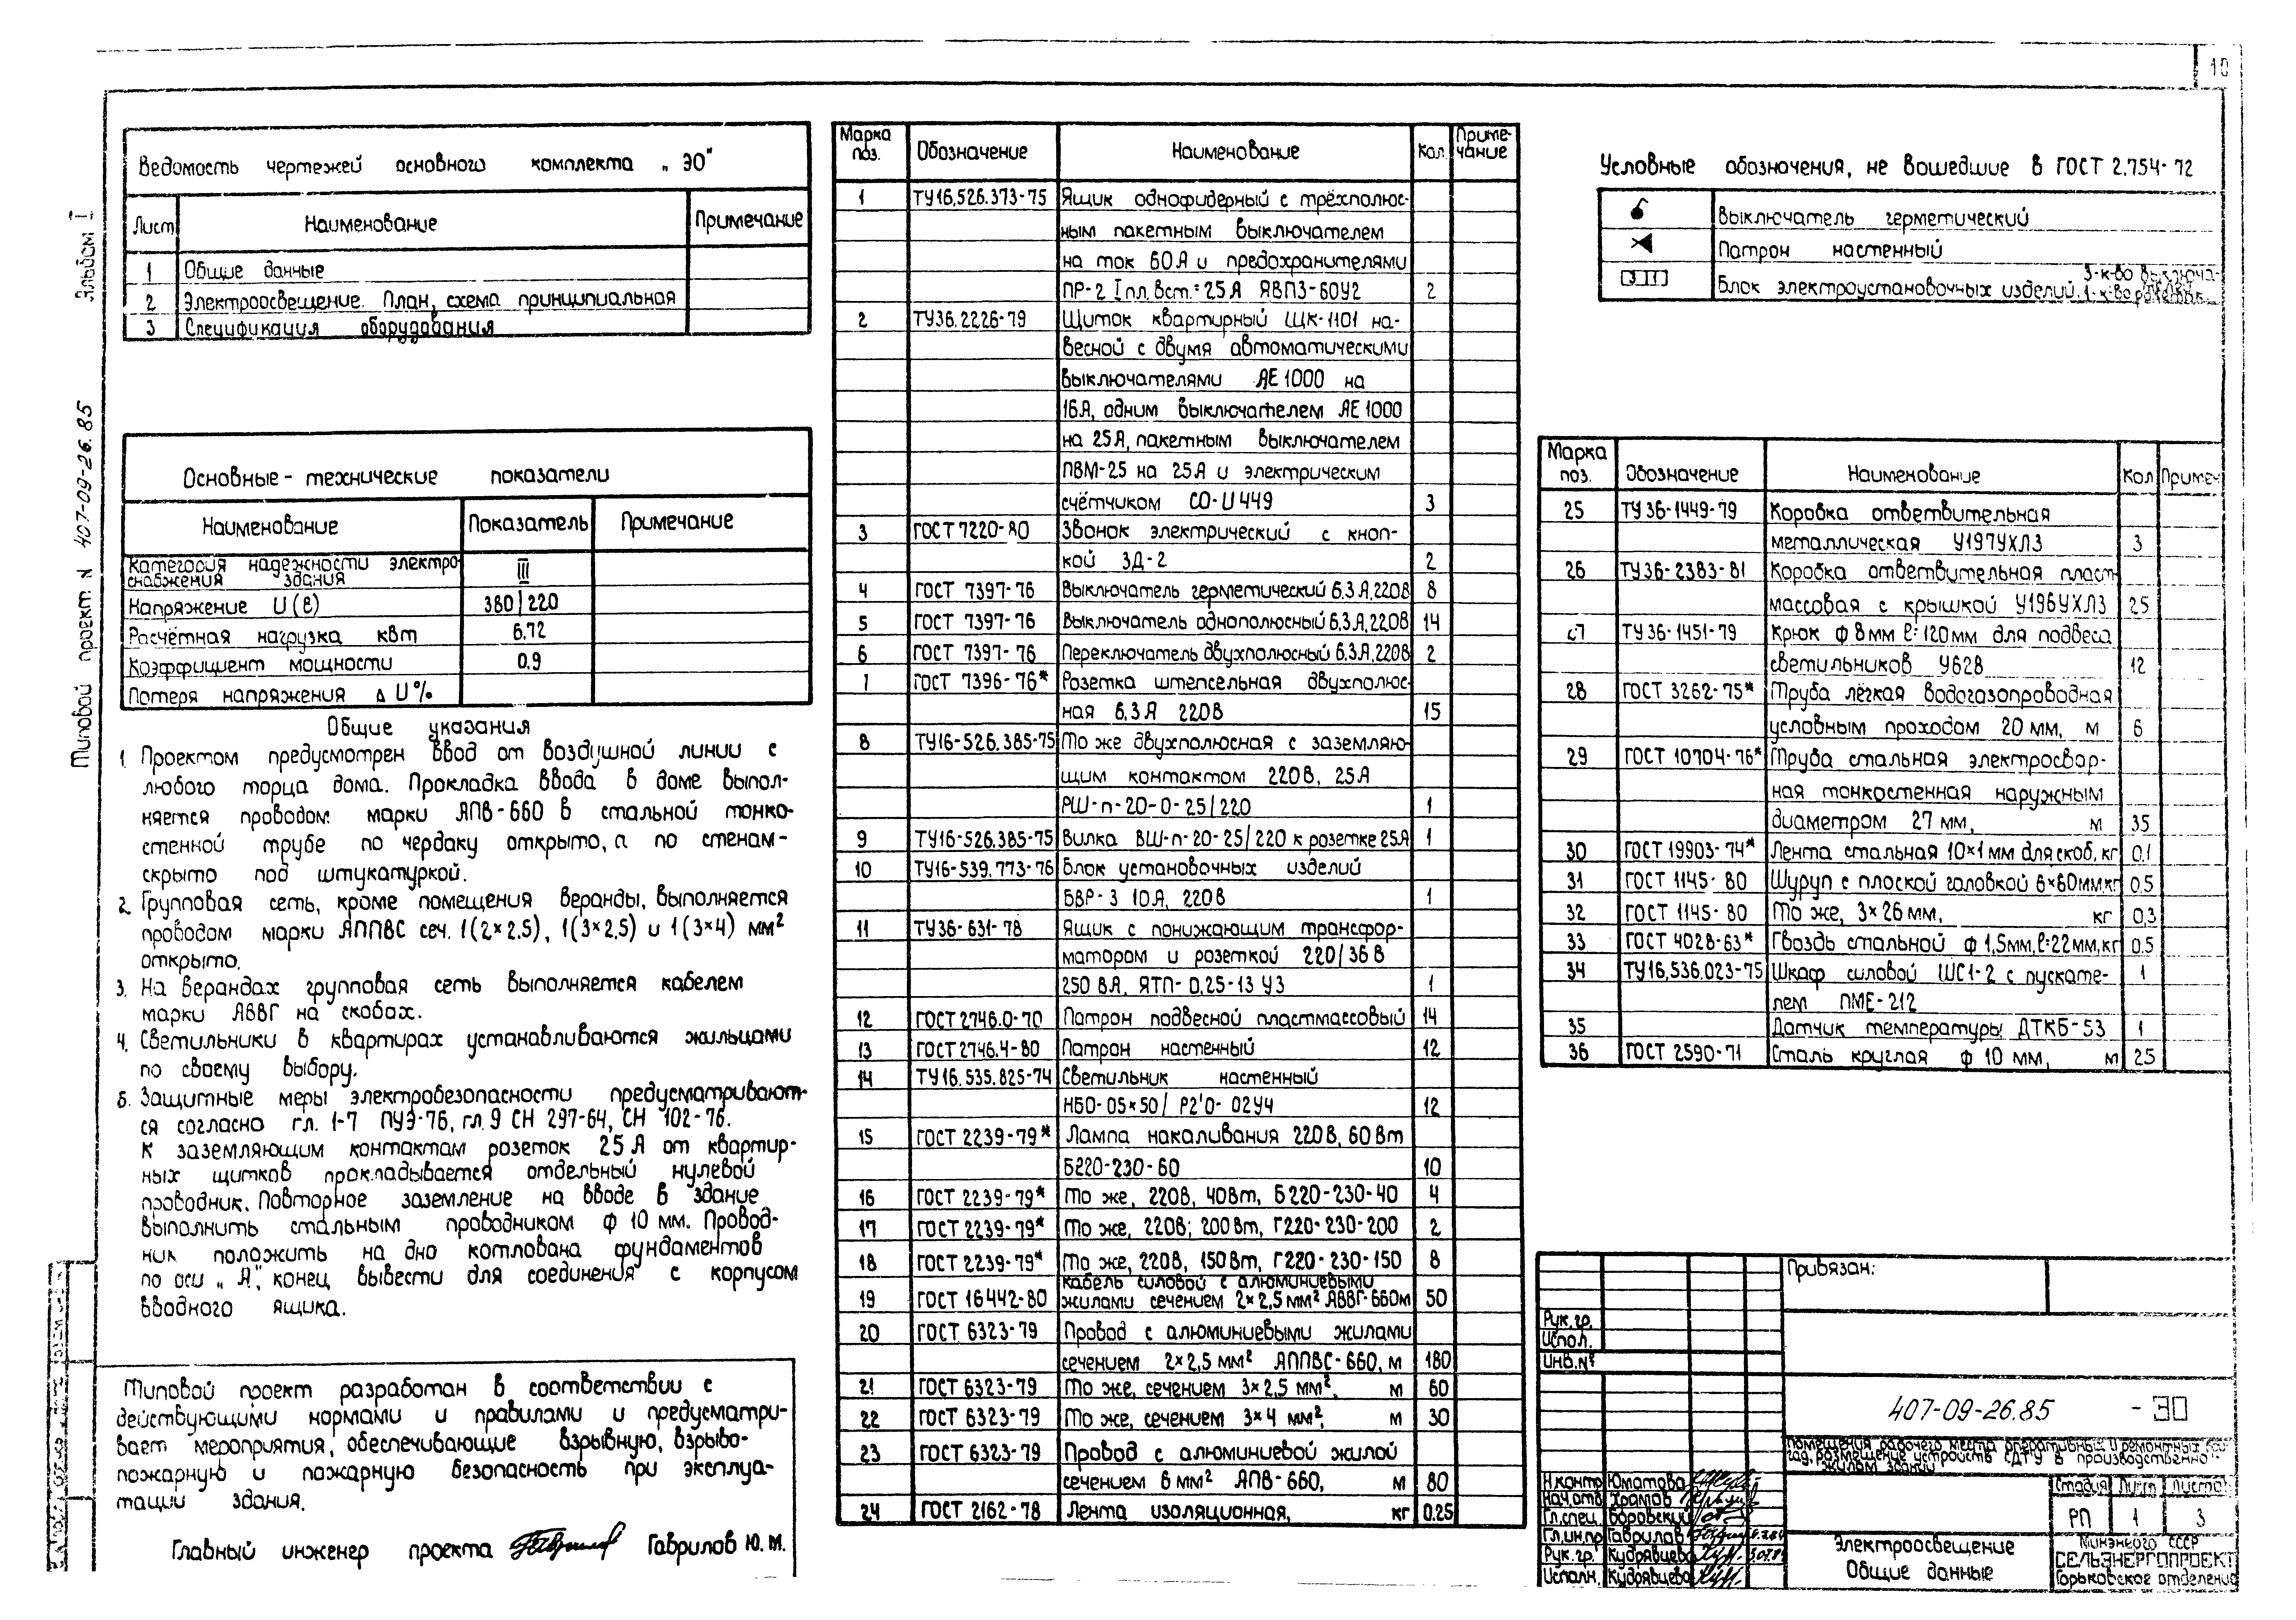 10
Альбом I
Типовой проект N 407-09-26.85
Ведомость чертежей основного комплекта „ЭО"
Лист Наименование Примечание
1 Общие данные
2 Электроосвещение. План, схема принципиальная
3 Спецификация оборудования
Основные - технические показатели
Наименование Показатель Примечание
Категория надежности электро-
снабжения здания III
Напряжение U (В) 380/220
Расчётная нагрузка квт 6.72
Коэффициент мощности 0.9
Потеря напряжения Δ U%
Общие указания
1. Проектом предусмотрен ввод от воздушной линии с
любого торца дома. Прокладка ввода в доме выпол-
няется проводом марки АПВ-660 в стальной тонко-
стенной трубе по чердаку открыто, а по стенам-
скрыто под штукатуркой.
2. Групповая сеть, кроме помещения веранды, выполняется
проводом марки АППВС сеч. 1(2×2,5), 1(3×2,5) и 1(3×4) мм²
открыто.
3. На верандах групповая сеть выполняется кабелем
марки АВВГ на скобах.
4. Светильники в квартирах устанавливаются жильцами
по своему выбору.
5. Защитные меры электробезопасности предусматривают-
ся согласно гл. 1-7 ПУЭ-76, гл. 9 СН 297-64, СН 102-76.
К заземляющим контактам розеток 25 А от квартир-
ных щитков прокладывается отдельный нулевой
проводник. Повторное заземление на вводе в здание
выполнить стальным проводником ф 10 мм. Провод-
ник положить на дно котлована фундаментов
по оси „А", конец вывести для соединения с корпусом
вводного ящика.
Типовой проект разработан в соответствии с
действующими нормами и правилами и предусматри-
вает мероприятия, обеспечивающие взрывную, взрыво-
пожарную и пожарную безопасность при эксплуа-
тации здания.
Главный инженер проекта Гаврилов Ю. М.
Марка поз. Обозначение Наименование Кол. Приме-чание
1 ТУ16.526.373-75 Ящик однофидерный с трёхполюс-
ным пакетным выключателем
на ток 60А и предохранителями
ПР-2 Iпл.вст.=25А ЯВПЗ-60У2 2
2 ТУ36.2226-79 Щиток квартирный ЩК-1101 на-
весной с двумя автоматическими
выключателями АЕ 1000 на
16А, одним выключателем АЕ 1000
на 25А, пакетным выключателем
ПВМ-25 на 25А и электрическим
счётчиком СО-И 449 3
3 ГОСТ 7220-80 Звонок электрический с кноп-
кой ЗД-2 2
4 ГОСТ 7397-76 Выключатель герметический 6,3А,220В 8
5 ГОСТ 7397-76 Выключатель однополюсный 6,3А,220В 14
6 ГОСТ 7397-76 Переключатель двухполюсный 6,3А,220В 2
7 ГОСТ 7396-76* Розетка штепсельная двухполюс-
ная 6,3А 220В 15
8 ТУ16-526.385-75 То же двухполюсная с заземляю-
щим контактом 220В, 25А
РШ-п-20-0-25/220 1
9 ТУ16-526.385-75 Вилка ВШ-п-20-25/220 к розетке 25А 1
10 ТУ16-539.773-76 Блок установочных изделий
БВР-3 10А, 220В 1
11 ТУ36-631-78 Ящик с понижающим трансфор-
матором и розеткой 220/36В
250 ВА, ЯТП-0,25-13 У3 1
12 ГОСТ 2746.0-70 Патрон подвесной пластмассовый 14
13 ГОСТ 2746.4-80 Патрон настенный 12
14 ТУ16.535.825-74 Светильник настенный
НБО-05×50/Р2'0-02У4 12
15 ГОСТ 2239-79* Лампа накаливания 220В, 60Вт
Б220-230-60 10
16 ГОСТ 2239-79* То же, 220В, 40Вт, Б220-230-40 4
17 ГОСТ 2239-79* То же, 220В, 200Вт, Г220-230-200 2
18 ГОСТ 2239-79* То же, 220В, 150Вт, Г220-230-150 8
Кабель силовой с алюминиевыми
19 ГОСТ 16442-80 жилами сечением 2×2,5мм² АВВГ-660м 50
20 ГОСТ 6323-79 Провод с алюминиевыми жилами
сечением 2×2,5 мм² АППВС-660, м 180
21 ГОСТ 6323-79 То же, сечением 3×2,5 мм², м 60
22 ГОСТ 6323-79 То же, сечением 3×4 мм², м 30
23 ГОСТ 6323-79 Провод с алюминиевой жилой
сечением 6 мм² АПВ-660, м 80
24 ГОСТ 2162-78 Лента изоляционная, кг 0.25
Условные обозначения, не вошедшие в ГОСТ 2.754-72
Выключатель герметический
Патрон настенный
Блок электроустановочных изделий. 3-к-во выключа-
1-к-во розеток
Марка поз. Обозначение Наименование Кол Примеч
25 ТУ 36-1449-79 Коробка ответвительная
металлическая У197УХЛ3 3
26 ТУ36-2383-81 Коробка ответвительная пласт-
массовая с крышкой У196УХЛ3 25
27 ТУ36-1451-79 Крюк ф 8мм ℓ=120мм для подвеса
светильников У628 12
28 ГОСТ 3262-75* Труба лёгкая водогазопроводная
условным проходом 20 мм, м 6
29 ГОСТ 10704-76* Труба стальная электросвар-
ная тонкостенная наружным
диаметром 27 мм, м 35
30 ГОСТ 19903-74* Лента стальная 10×1мм для скоб, кг 0,1
31 ГОСТ 1145-80 Шуруп с плоской головкой 6×60мм,кг 0.5
32 ГОСТ 1145-80 То же, 3×26 мм, кг 0,3
33 ГОСТ 4028-63* Гвоздь стальной ф 1,5мм,ℓ=22мм,кг 0.5
34 ТУ16.536.023-75 Шкаф силовой ШС1-2 с пускате- 1
лем ПМЕ-212
35 Датчик температуры ДТКБ-53 1
36 ГОСТ 2590-71 Сталь круглая ф 10 мм, м 25
Привязан:
Рук.гр.
Испол.
Инв.№
407-09-26.85 -ЭО
Помещения рабочего места оперативных и ремонтных бри-
гад, размещение устройств СДТУ в производственно-
жилом здании
Н.контр Юматова
Нач.отд Храмов
Гл.спец. Боровский
Гл.инж.пр Гаврилов
Рук.гр. Кудрявцева
Исполн. Кудрявцева
Стадия Лист Листов
РП 1 3
Электроосвещение
Общие данные
Минэнерго СССР
СЕЛЬЭНЕРГОПРОЕКТ
Горьковское отделение